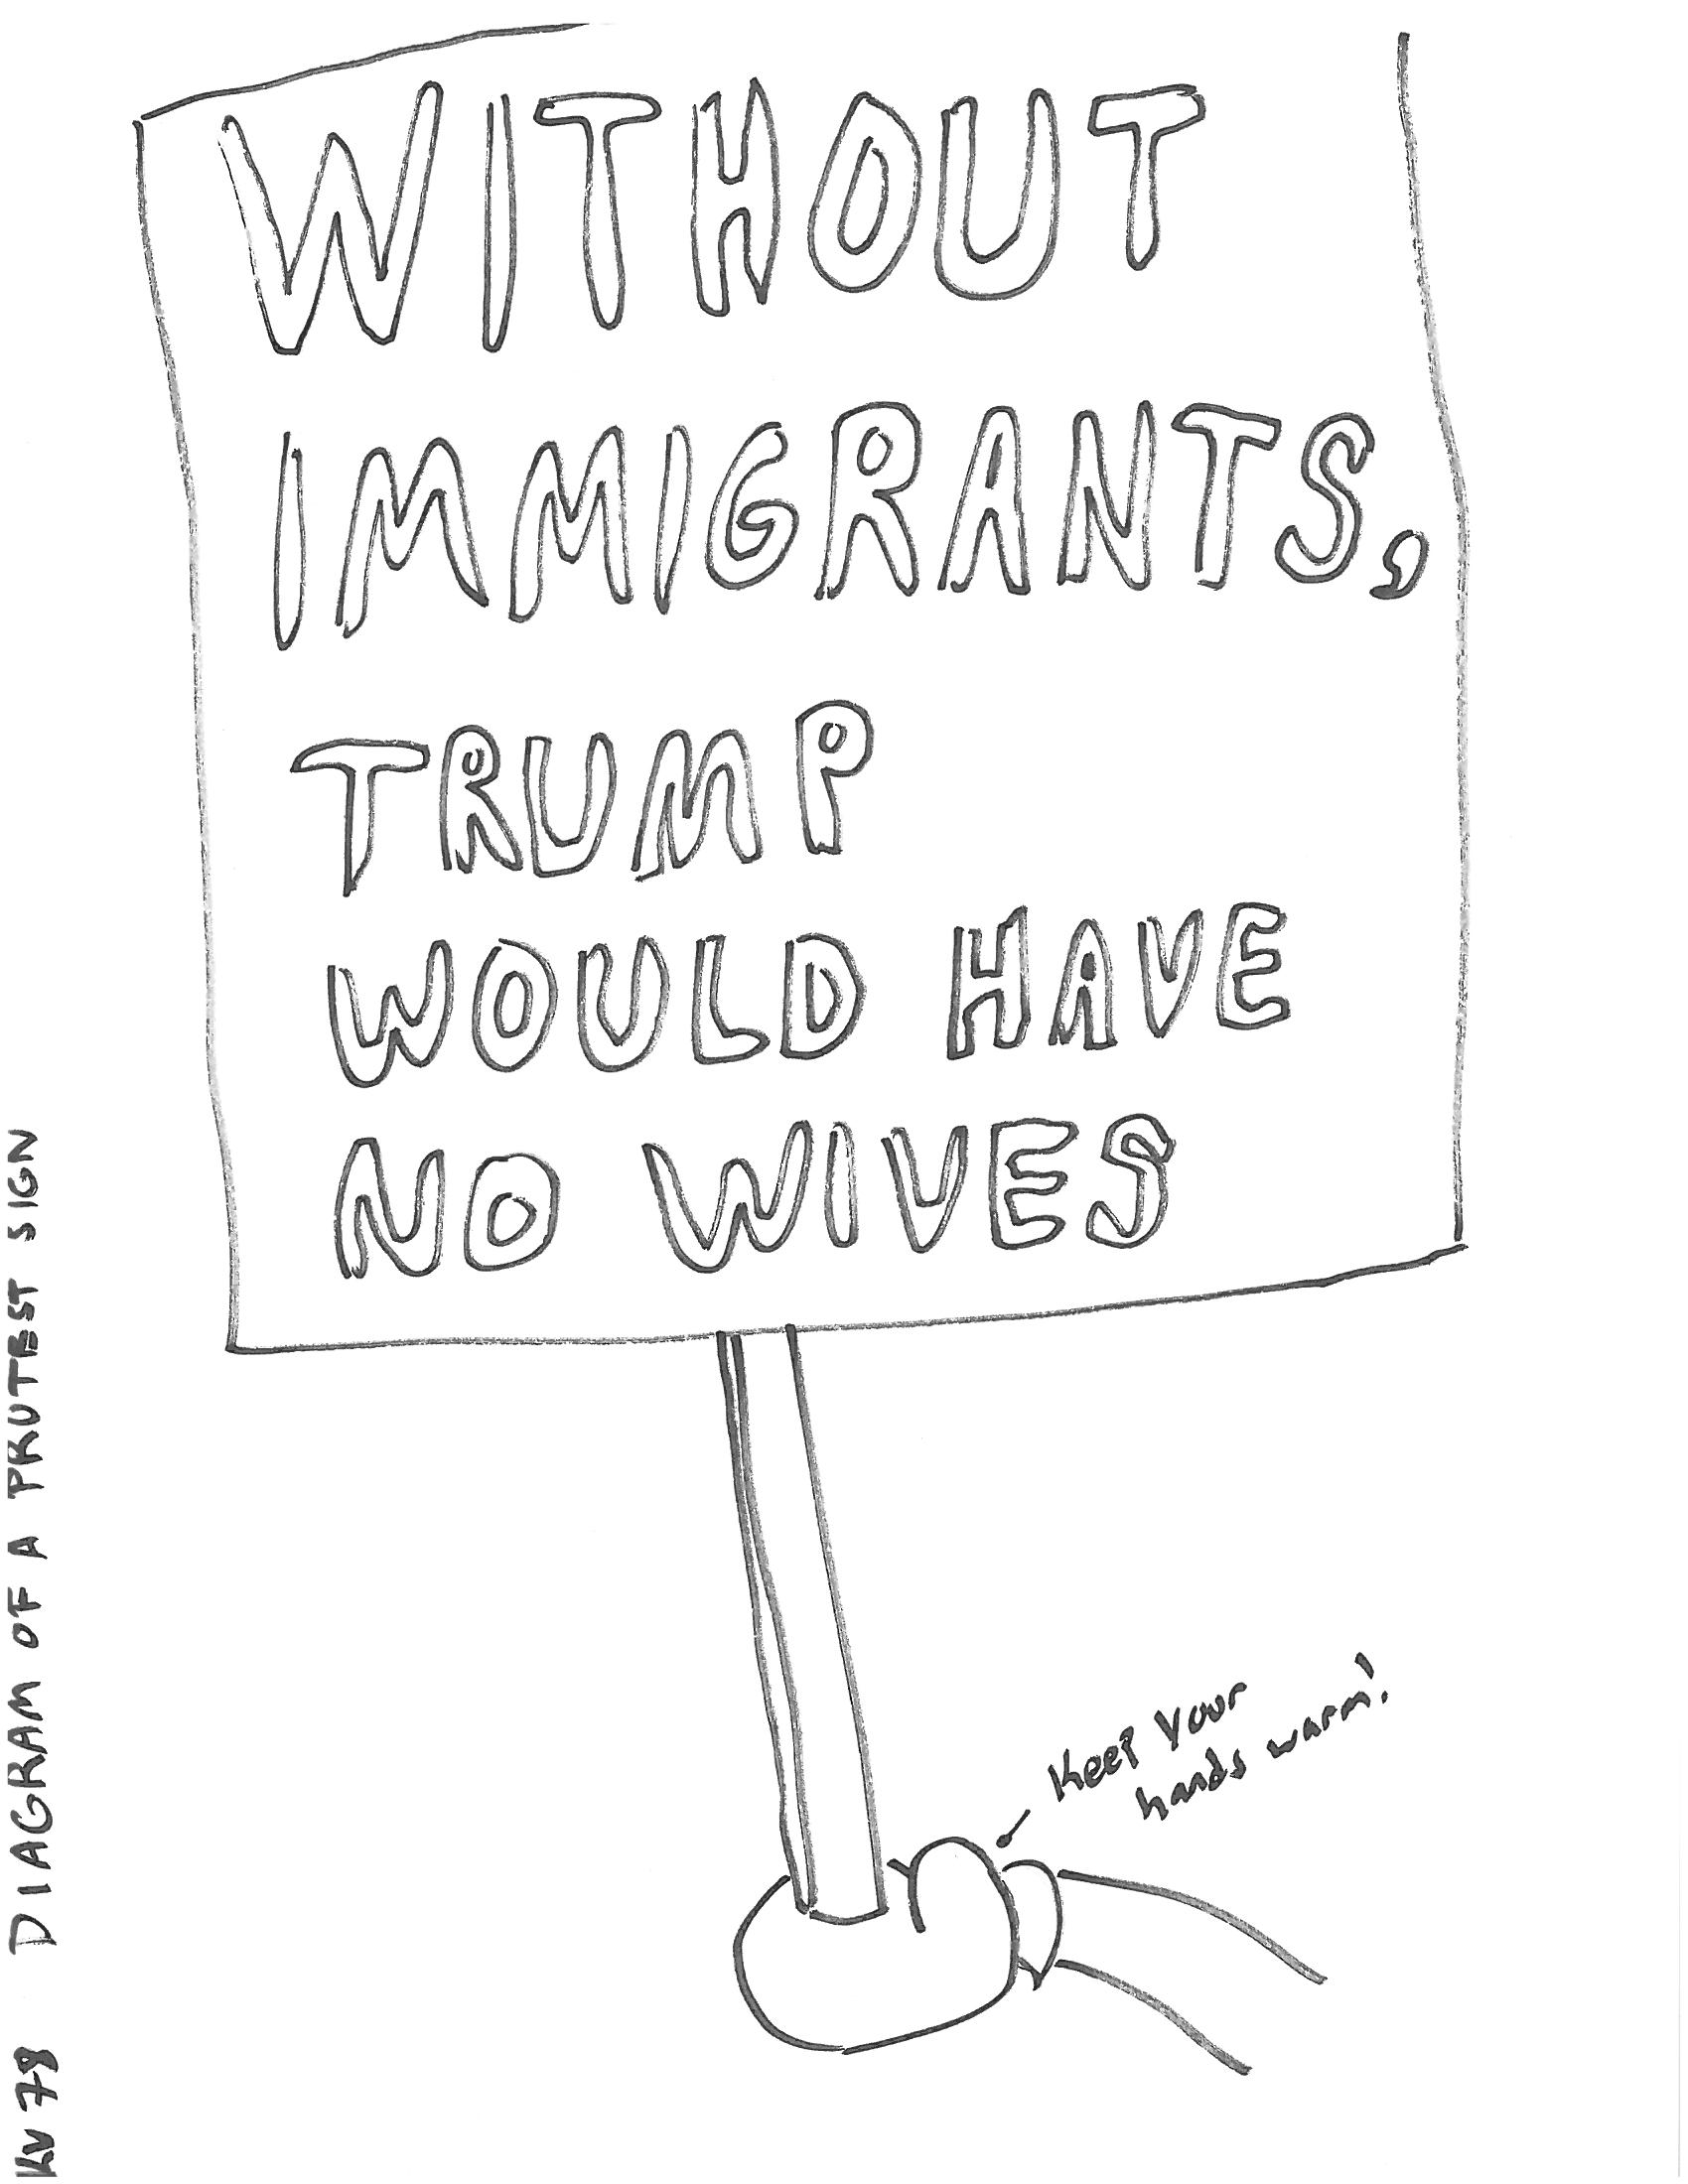 WITHOUT
IMMIGRANTS,
TRUMP
WOULD HAVE
NO WIVES
Keep your
hands warm!
KV 78 DIAGRAM OF A PROTEST SIGN